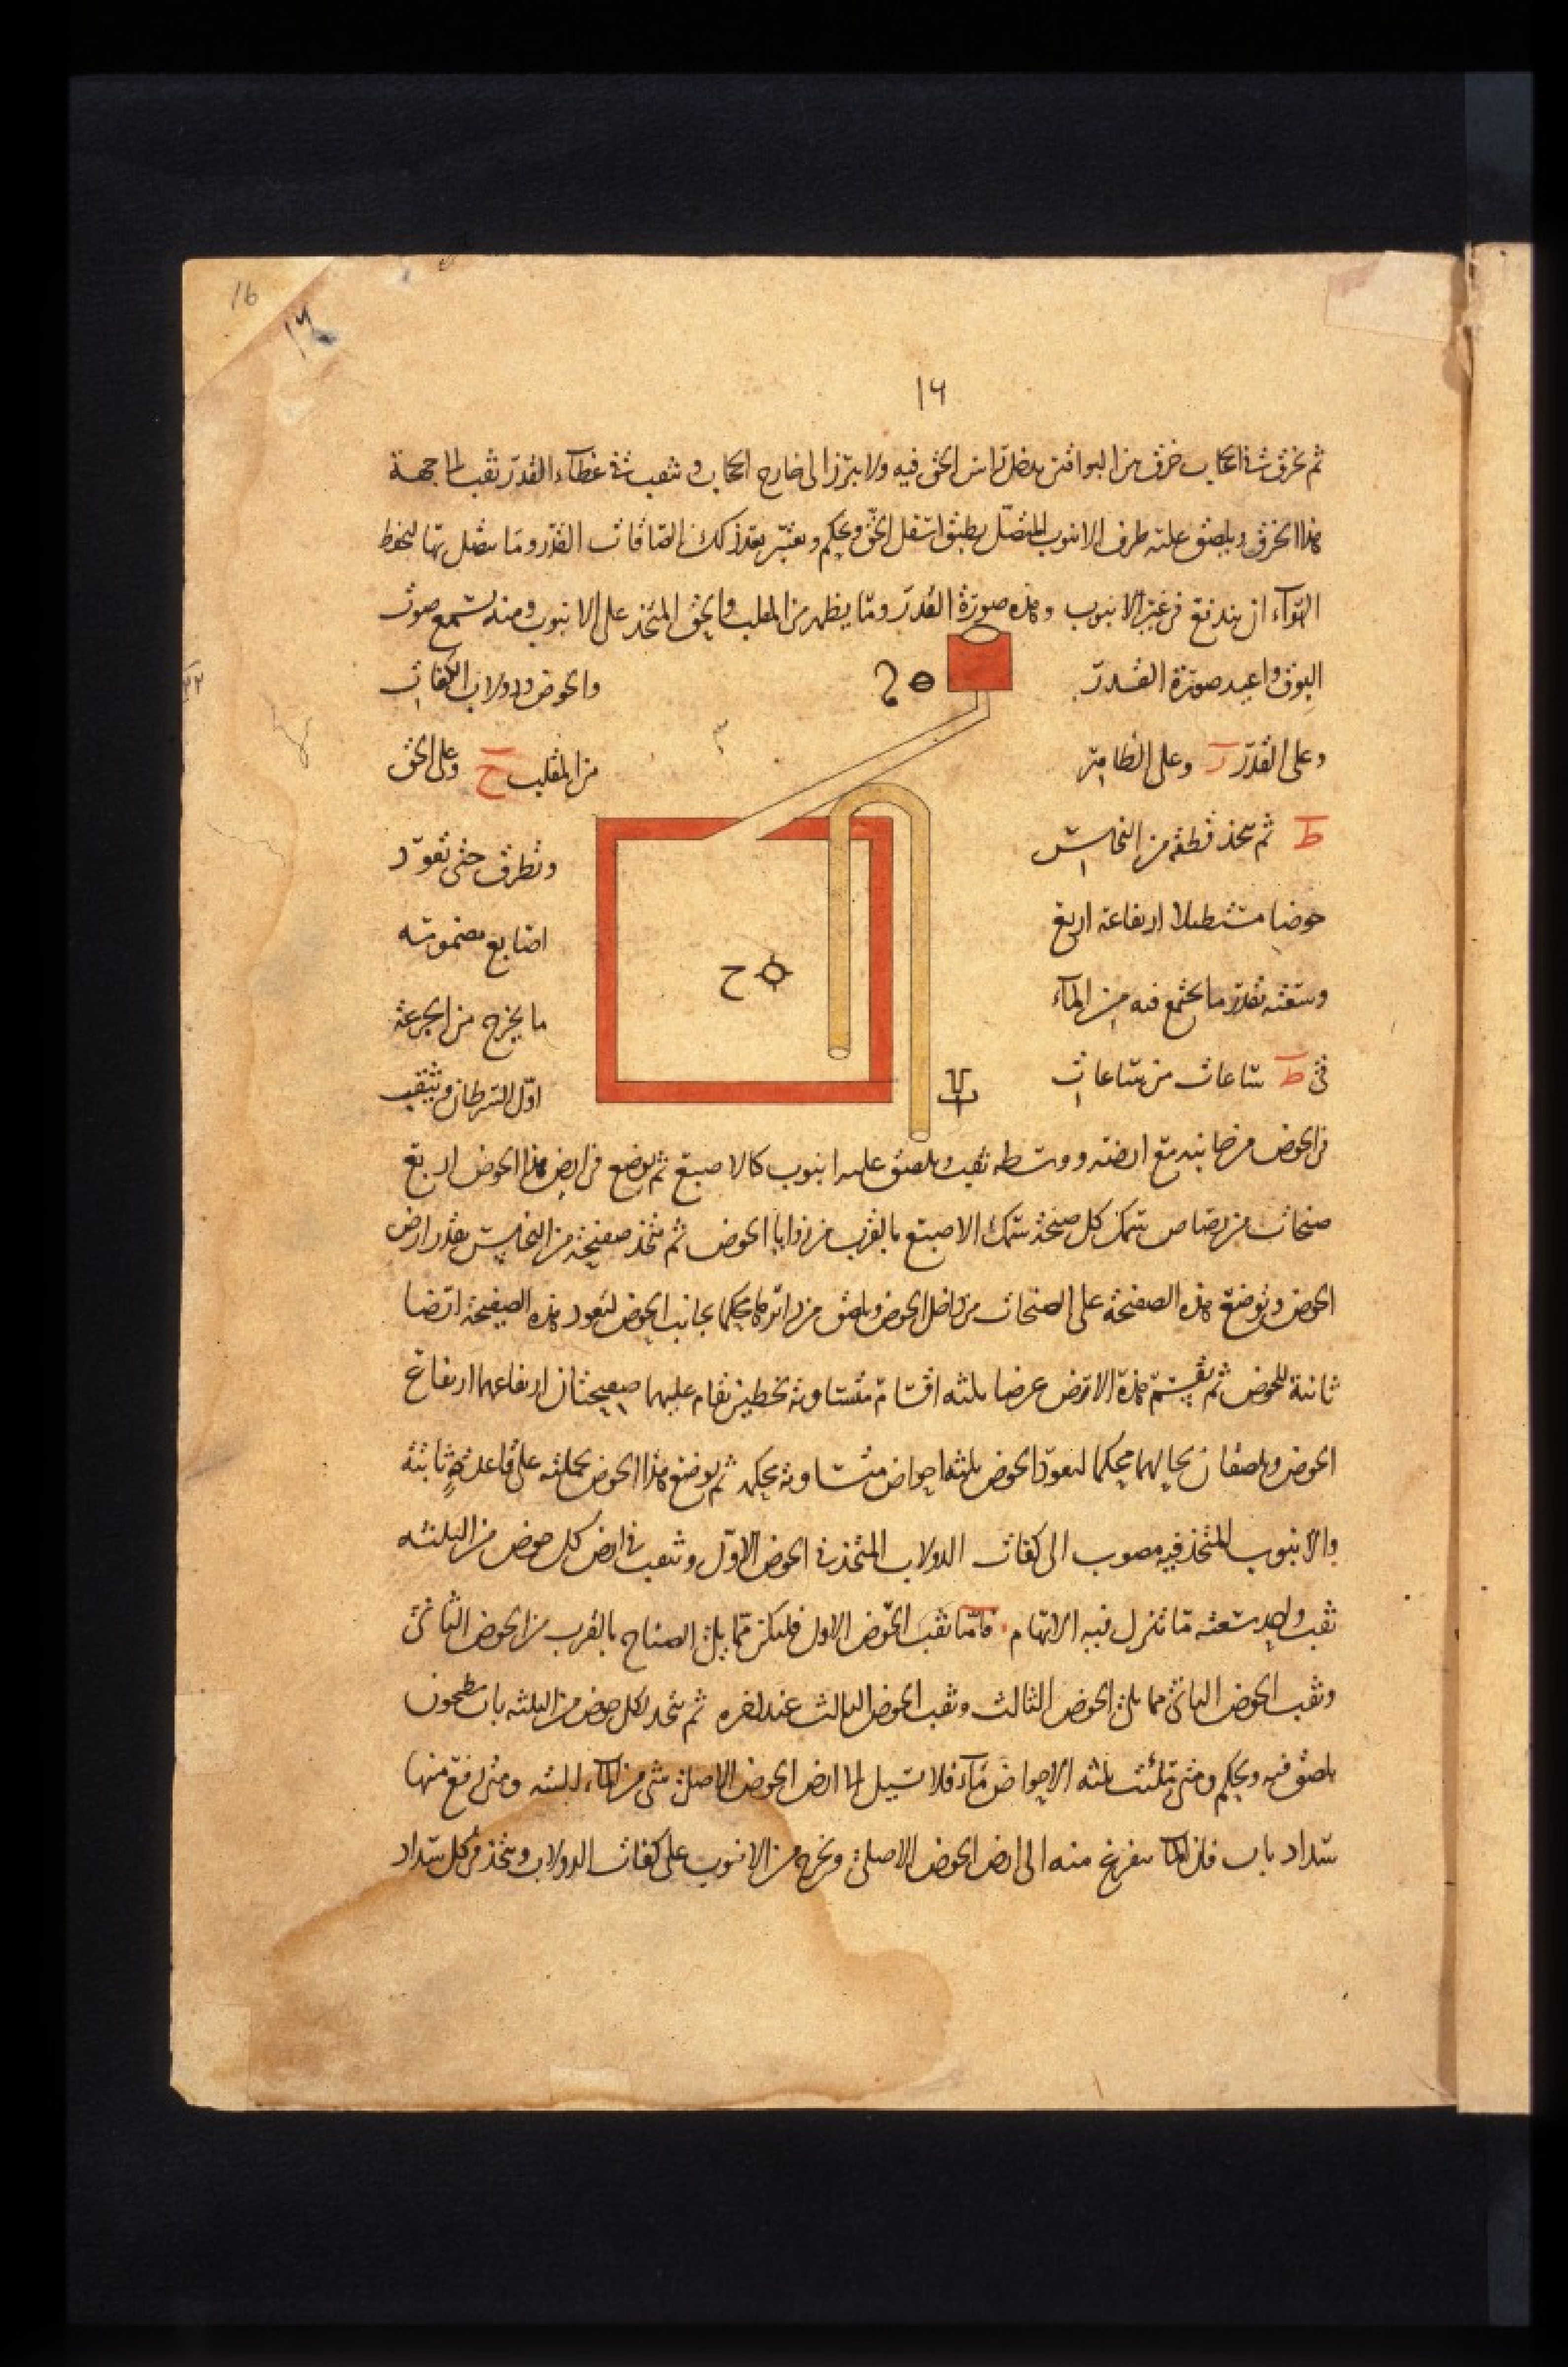 16
١٦
١٦
ثم يخرق في الحجاب خرق من البواقين يدخل راس الحق فيه ولا يبرز الى خارج الحجاب ويثقب في غطاء القدر ثقب الى جهة
هذا الخرق ويلصق عليه طرف الانبوب المتصل بطبق اسفل الحق ويحكم ويعتبر بعد ذلك القدر وما يتصل بها لتحفظ
الهواء ان يندفع في غير الانبوب وهذه صورة القدر وما يظهر من المقلب والحق المتخذ على الانبوب ومنه يسمع صوت
البوق واعيد صورة القدر والحوض ودولاب الكفات
وعلى القدر وعلى من المقلب ح وعلى الحق
ط ثم يتخذ قطعة من النحاس وتطرق حتى تعود
حوضا مستطيلا ارتفاعه اربع اصابع مضمومة
وسعته بقدر ما يجتمع فيه من الماء ما يخرج من الجزعة
في ط ساعات من ساعات اول السرطان ويثقب
في الحوض من جانبه مع ارضه ووسطه ثقب ويلصق عليه انبوب كالاصبع ثم يوضع في ارض هذا الحوض اربع
صنجات من رصاص سمك كل صنجة سمك الاصبع بالقرب من زوايا الحوض ثم تتخذ صفيحة من النحاس بقدر ارض
الحوض وتوضع هذه الصفيحة على الصنجات من داخل الحوض ويلصق من دائرها محكما بجانب الحوض لتعود هذه الصفيحة ارضا
ثانية للحوض ثم تقسم هذه الارض عرضا بثلثه اقسام متساوية بخطين تقام عليهما صفيحتان ارتفاعهما ارتفاع
الحوض ويلصقان بحالهما محكما ليعود الحوض ثلثه احواض متساوية محكم ثم يوضع هذا الحوض بجملته على قاعدة ثابتة
والانبوب المتخذ فيه مصوب الى كفات الدولاب المتخذ في الحوض الاول ويثقب في ارض كل حوض من الثلثه
ثقب واحد سعته ما تنزل فيه الابهام فاما ثقب الحوض الاول فليكن مما يلي الصناج بالقرب من الحوض الثاني
وثقب الحوض الثاني مما يلي الحوض الثالث وثقب الحوض الثالث عند اخره ثم يتخذ لكل حوض من الثلثه باب مطحون
يلصق فيه ويحكم ومتى ملئت ثلثه الاحواض ماء فلا يسيل الى ارض الحوض الاصلي شى من الماء البته ومتى رفع منها
سداد باب فان الماء يفرغ منه الى ارض الحوض الاصلي ويخرج من الانبوب على كفات الدولاب ويتخذ في كل سداد
ح